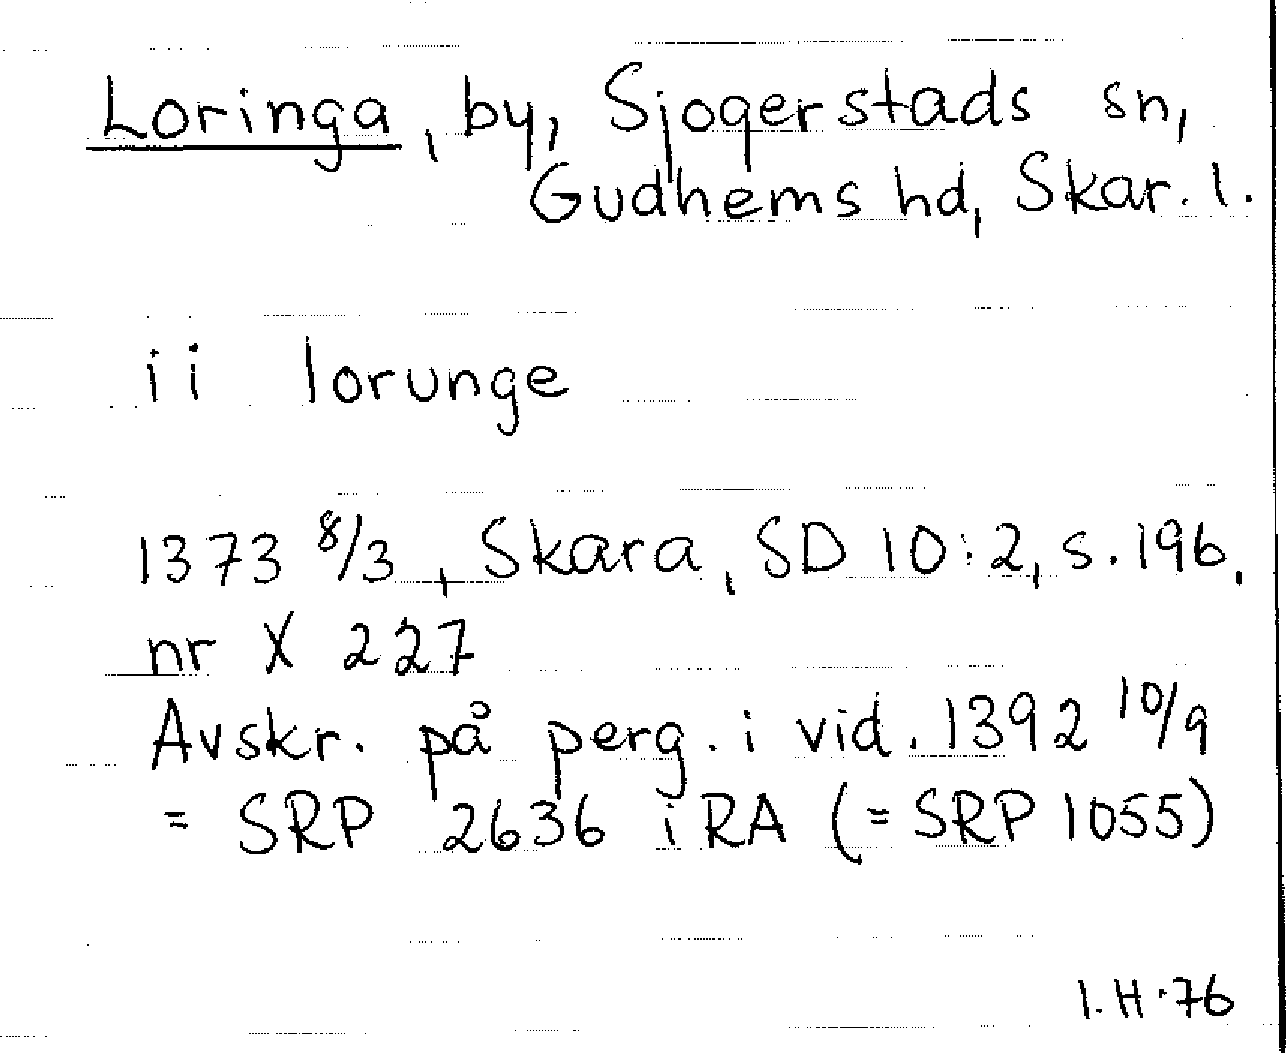 Loringa, by, Sjogerstads sn,
Gudhems hd, Skar. l.
ii lorunge
1373 8/3, Skara, SD 10:2, s. 196,
nr X 227
Avskr. på perg. i vid. 1392 10/9
= SRP 2636 i RA (= SRP 1055)
I.H.76